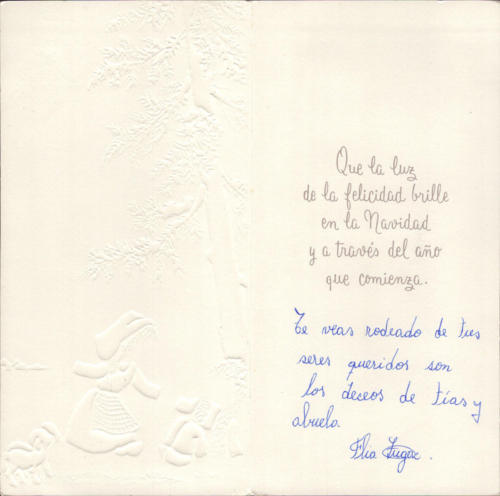 Que la luz
de la felicidad brille
en la Navidad
y a través del año
que comienza.
Te veas rodeado de tus
seres queridos son
los deceos de tías y
abuela.
Flia Lugoz.